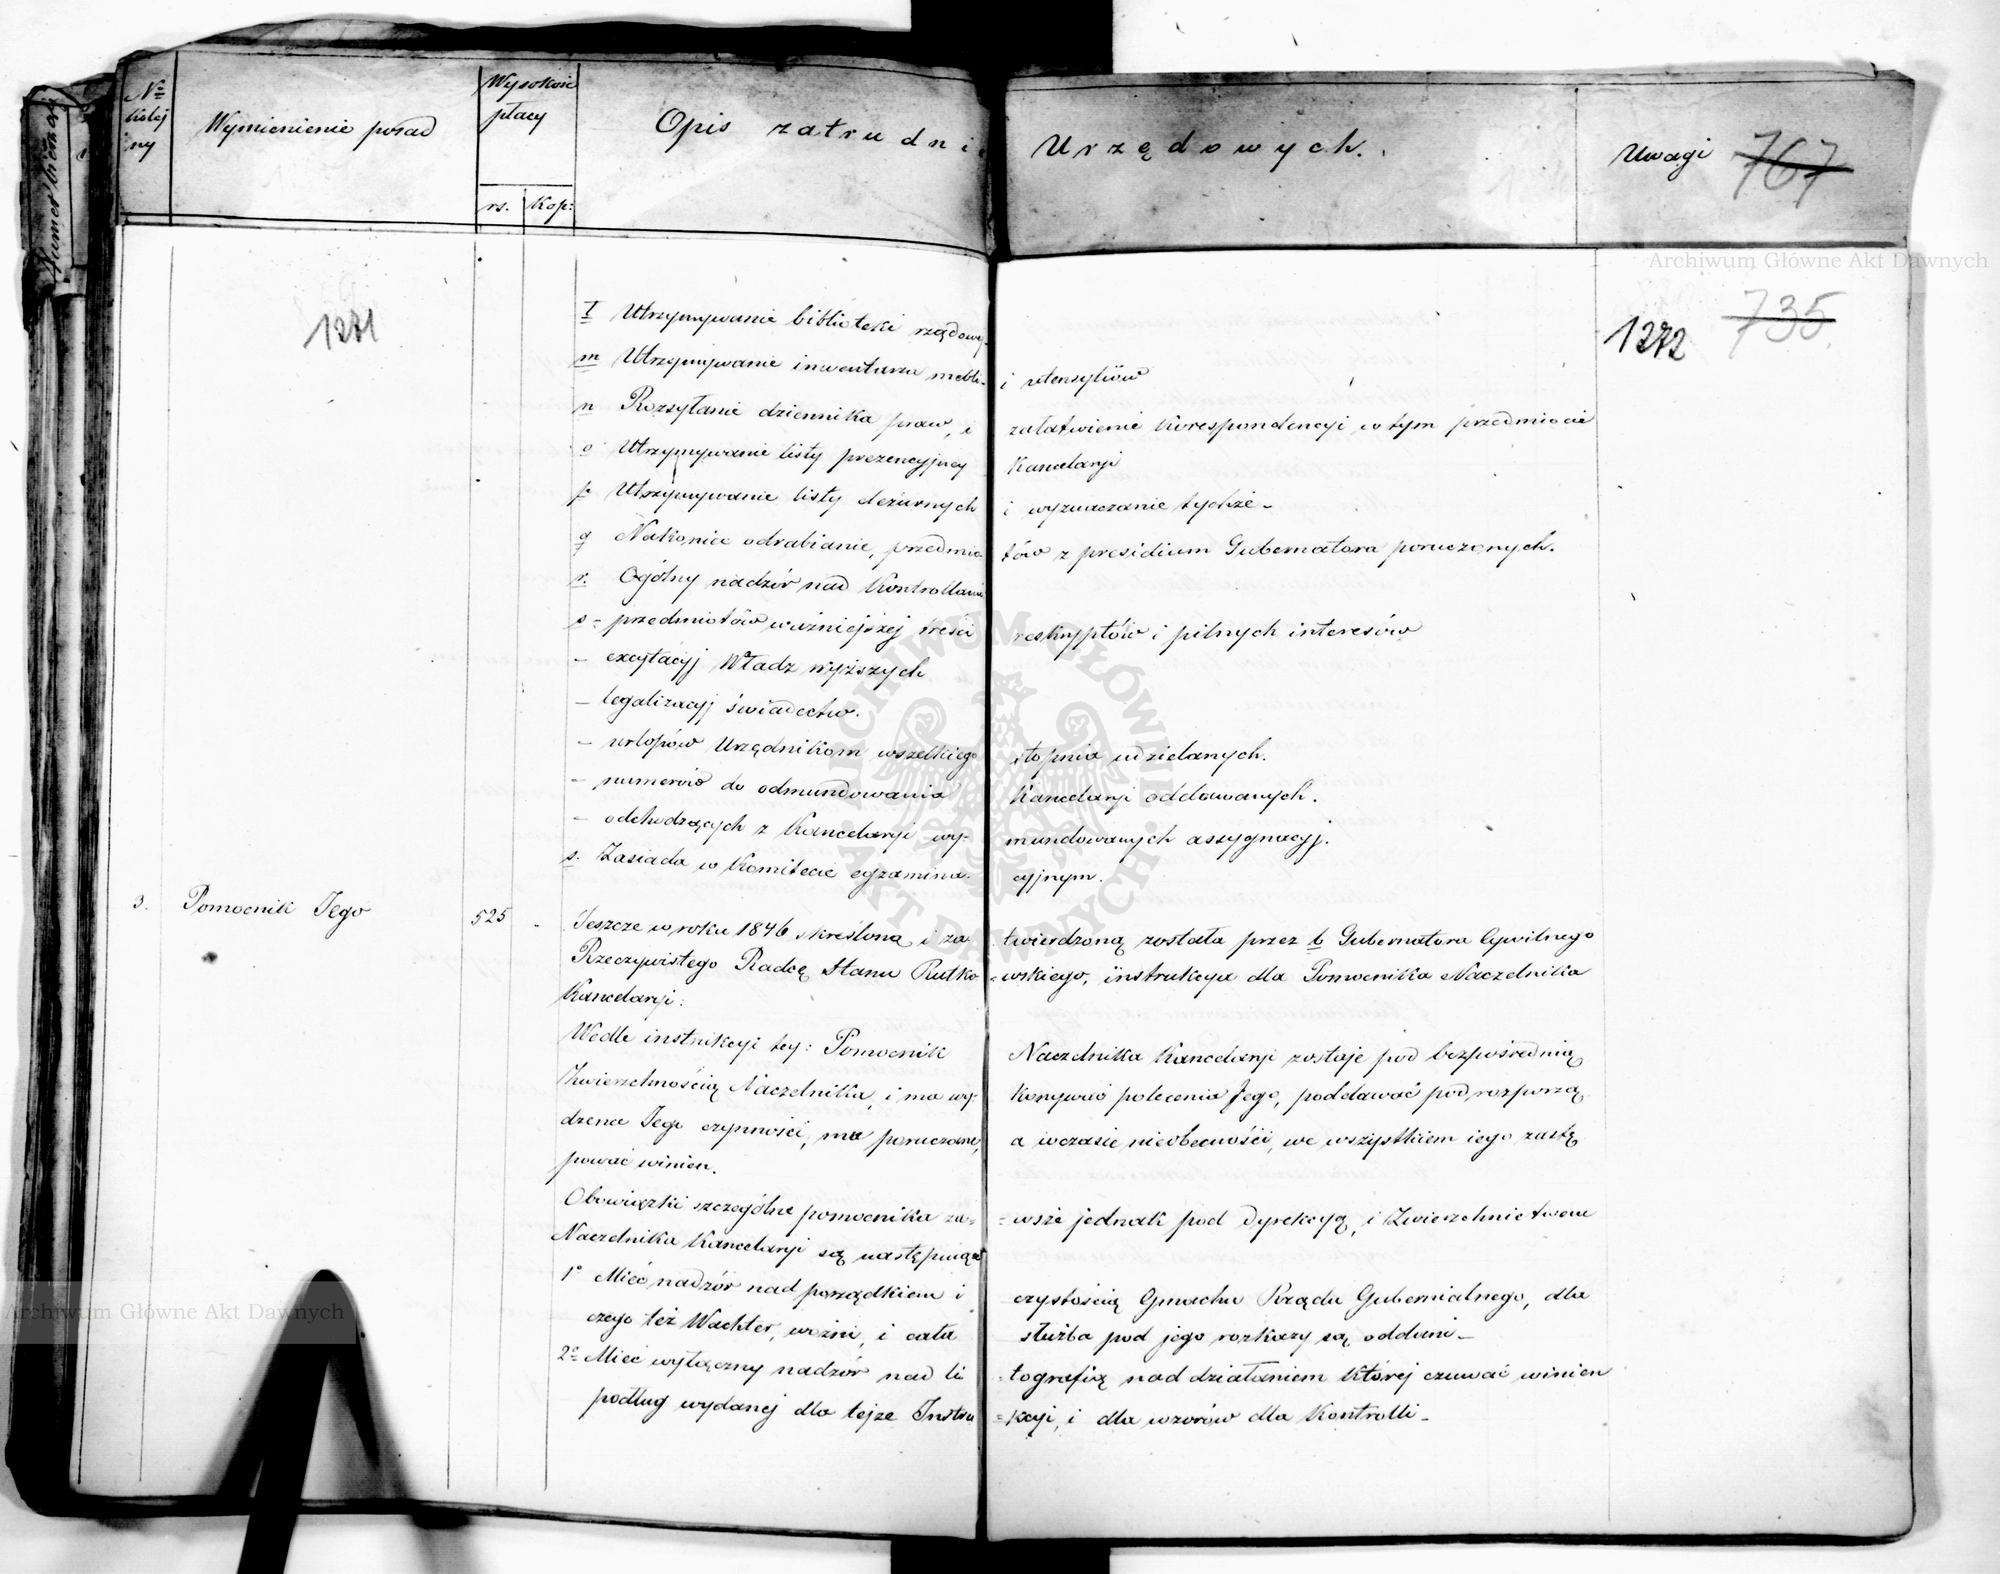 Nº kolejny
Wymienienie posad
Wysokość płacy
rs. Kop:
Opis zatrudnie Urzędowych.
Uwagi 767
Numer bieżący
1271
1272 735
l Utrzymywanie biblioteki rządowej
m Utrzymywanie inwentarza mebli i utensyliów
n Rozsyłanie dziennika praw, i załatwienie Korespondencyi w tym przedmiocie
o Utrzymywanie listy prezencyjney Kancelaryi
p Utrzymywanie listy dezurnych i wyznaczanie tychże _
q Nakoniec odrabianie, przedmiotów z presidium Gubernatora poruczonych.
r. Ogólny nadzór nad Kontrollami
s = przedmiotów ważniejszej treści reskryptów i pilnych interesów
– excytacyj Władz wyższych
– legalizacyj świadectw.
– urlopów Urzędnikom wszelkiego stopnia udzielanych.
– numerów do odmundowania Kancelaryi oddawanych.
– odchodzących z Kancelaryi wymundowanych assygnacyj.
s. Zasiada w Komitecie egzaminacyjnym.
3. Pomocnik Jego 525 „
Jeszcze w roku 1846 skreśloną i zatwierdzoną została przez b Gubernatora Cywilnego
Rzeczywistego Radcę Stanu Rutko=wskiego, instrukcya dla Pomocnika Naczelnika
Kancelaryi:
Wedle instrukcyi tey: Pomocnik Naczelnika Kancelaryi zostaje pod bezpośrednią
Zwierzchnością Naczelnika, i ma wykonywać polecenia Jego, poddawać pod rozporzą
dzenia Jego czynności, ma poruczone, a wczasie nieobecności, we wszystkiem iego zastę
pować winien.
Obowiązki szczególne pomocnika za==wsze jednak pod Dyrekcyą, i Zwierzchnictwem
Naczelnika Kancelaryi są następujące
1º Mieć nadzór nad porządkiem i czystością Gmachu Rządu Gubernialnego, dla
czego też Wachter, woźni, i cała służba pod jego rozkazy są oddani _
2º Mieć wyłączny nadzór nad li=tografią nad działaniem Której czuwać winien
podług wydanej dla tejże Instru=kcyi, i dla wzorów dla Kontrolli _
Archiwum Główne Akt Dawnych
Archiwum Główne Akt Dawnych
ARCHIWUM GŁÓWNE AKT DAWNYCH